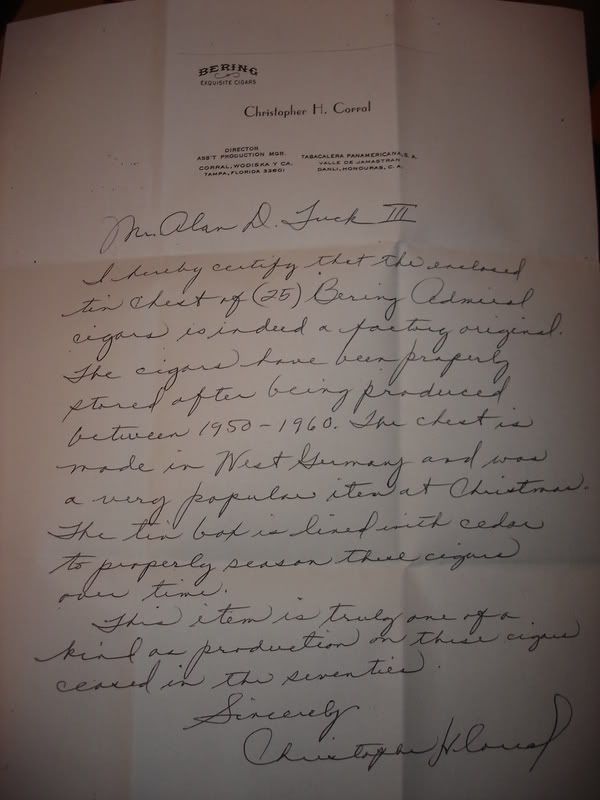 BERING
EXQUISITE CIGARS
Christopher H. Corral
DIRECTOR
ASS'T PRODUCTION MGR.
CORRAL, WODISKA Y CA.
TAMPA, FLORIDA 33601
TABACALERA PANAMERICANA, S. A.
VALLE DE JAMASTRAN
DANLI, HONDURAS, C. A.
Mr. Alan D. Tuck III
I hereby certify that the enclosed
tin chest of (25) Bering Admiral
cigars is indeed a factory original.
The cigars have been properly
stored after being produced
between 1950-1960. The chest is
made in West Germany and was
a very popular item at Christmas.
The tin box is lined with cedar
to properly season these cigars
over time.
This item is truly one of a
kind as production on these cigars
ceased in the seventies.
Sincerely
Christopher H. Corral